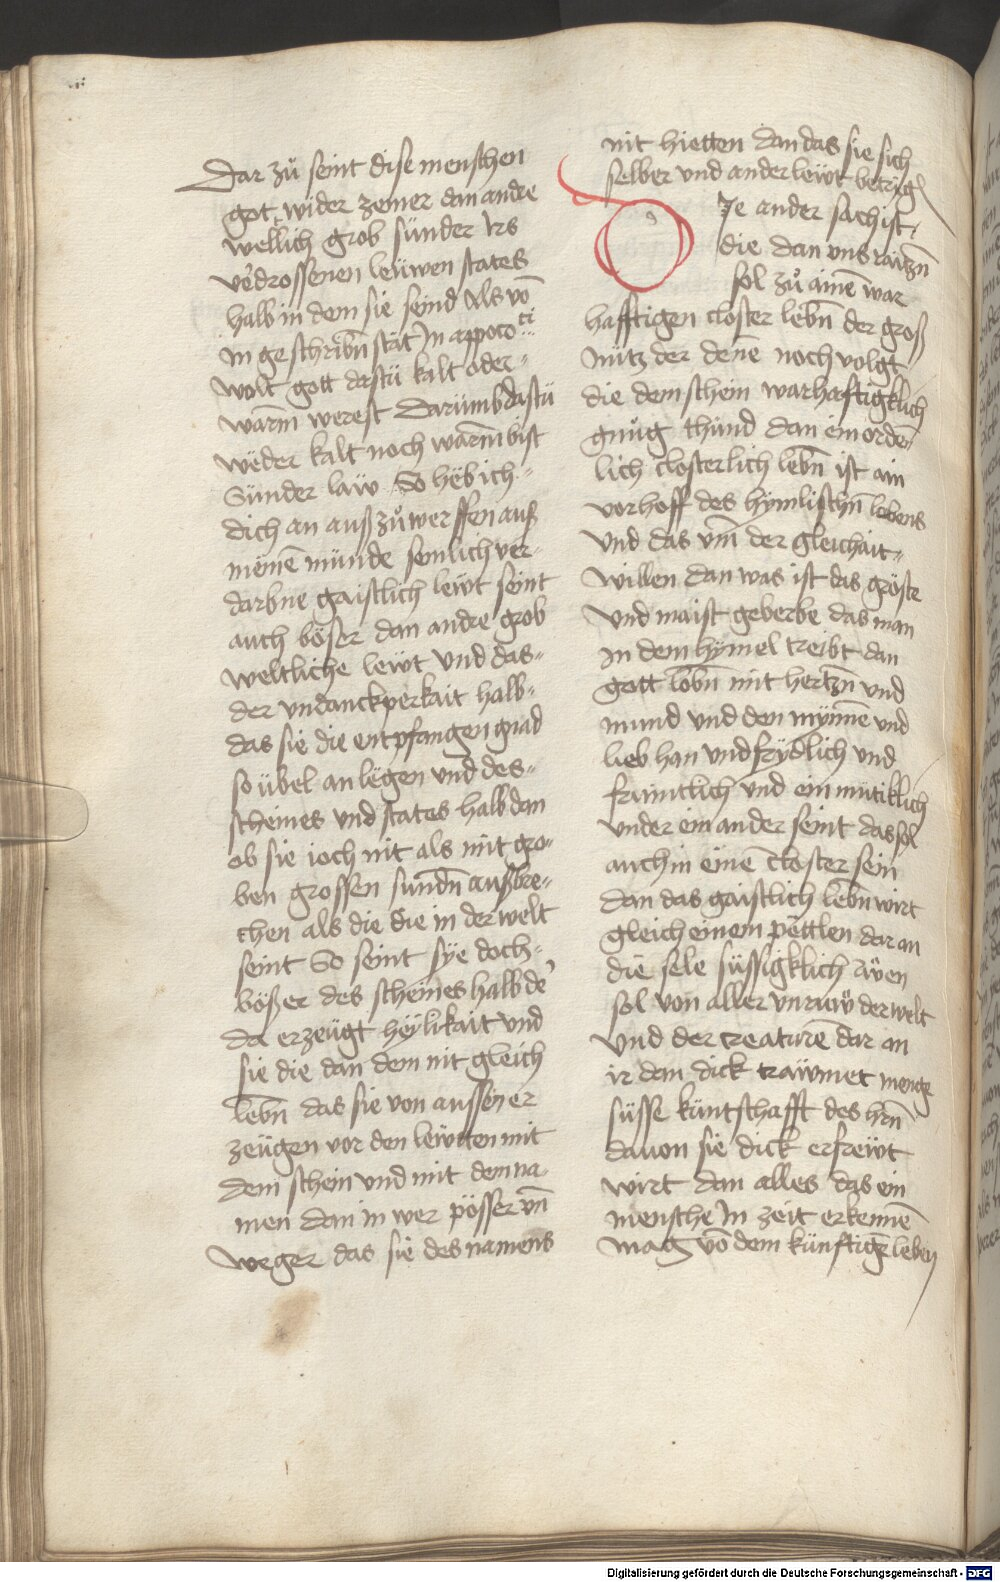 Dar zů seint dise menschen
got wider zemer dan andre
weltlich grob sünder Irs
vẽdrossenen leüwen states
halb in dem sie seind Als vō
in geschribn̄ stät In appoco ci
wolt gott dastü kalt oder
warm̄ werest Darümb dastü
weder kalt noch warm̄ bist
Sünder law So heb ich
dich an auß zů werffen auß
meinē münde semlich ver-
darbne gaistlich lewt seint
auch böser dan andre grob
weltliche lewt Vnd das
der vndanckperkait halb
das sie die entpfangen gnad
so übel an legen vnd des
scheines vnd states halb dan
ob sie ioch nit als mit gro-
ben grossen sundn̄ außbre-
chen als die die in der welt
seint So seint sye doch
bößer des scheines halb de
da erzeügt heylikait vnd
sie die dan dem nit gleich
lebn̄ das sie von aussen er
zeügen vor den lewtten mit
dem schein vnd mit dem na-
men dan in wer pösser vn̄
weger das sie des namens
nit hietten dan das sie sich
selber vnd ander lewt betrig
Je ander sach ist
die dan vns raitzn̄
sol zů ainē war
hafftigen closter lebn̄ der groß
nütz der denē noch volgt
die dem schein warhaftigklich
gnug thünd dan ein orden-
lich closterlich lebn̄ ist ain
vorhoff des hymlischn̄ lebens
Vnd das vm̄ der gleichait
willen dan was ist das gröste
Vnd maist geberbe das man
in dem hymel treibt dan
gott lobn̄ mit hertzn̄ vnd
mund vnd den mynnen vnd
lieb han vnd frydlich vnd
früntlich vnd ein mütiklich
vnder ein ander seint das sol
auch in einē closter sein
dan das gaistlich lebn̄ wirt
gleich einem pettlen dar an
die sele süssigklich rwen
sol von aller vnruw der welt
Vnd der creaturē dar an
ir dan dick trawmet menge
süsse küntschafft des hrn̄
dauon sie dick erfrewt
wirt dan alles das ein
mensche In zeit erkennē
mag vō dem künftigē leben
Digitalisierung gefördert durch die Deutsche Forschungsgemeinschaft - DFG